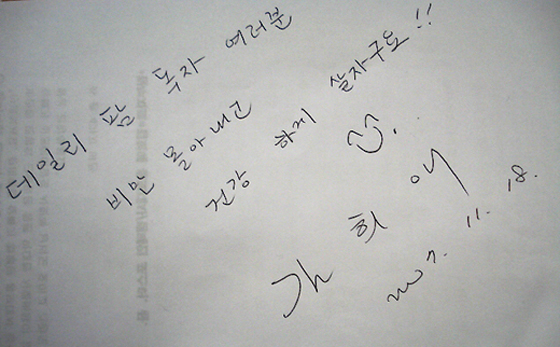 데일리 팜 독자 여러분
비만 몰아내고
건강 하게 살자구요!!
희 애
2007. 11. 18.